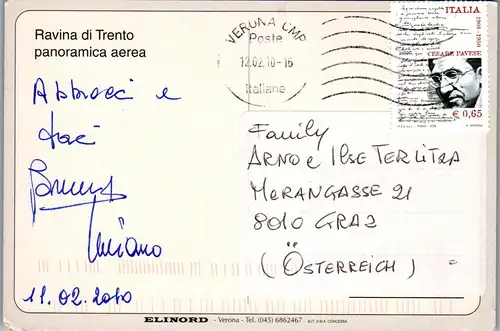 Ravina di Trento
panoramica aerea
VERONA CMP
Poste
12.02.10-16
Italiane
ITALIA
1908-1950
CESARE PAVESE
€ 0,65
Abbracci e
baci
Luciano
11.02.2010
Family
ARNO e ILSE TERLITZA
MERANGASSE 21
8010 GRAZ
(ÖSTERREICH)
ELINORD - Verona - Tel. (045) 6862467